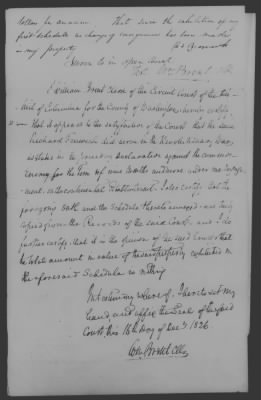 dollars per annum That since the exhibition of my
first schedule no changes of consequence has been made
in my property
Sworn to in open Court
Test Wm Brent Clk
I William Brent Clerk of the Circuit Court of the Dis-
trict of Columbia for the County of Washington hereby certify
that it appears to the satisfaction of the Court that the said
did serve in the Revolutionary War,
as stated in the preceding declaration against the common
enemy for the term of nine months under
ment on the continental Establishment. I also certify that the
foregoing oath and the Schedule thereto annexed are truly
copied from the Records of the said Court. and I do
further certify, that it is the opinion of the said Court that
the total amount in value of the said property exhibited in
the aforesaid Schedule is nothing
In testimony whereof, I hereto set my
hand, and affix the Seal of the said
Court this 16th day of Decr 1826
Wm Brent Clk